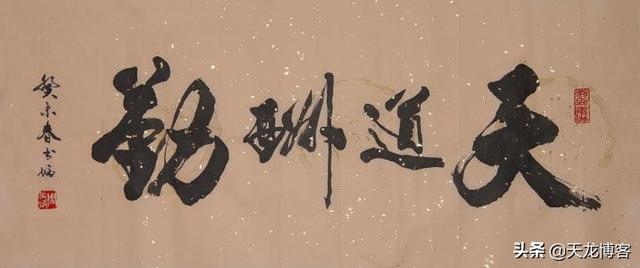 天道酬勤
癸未春书
头条 @天龙博客